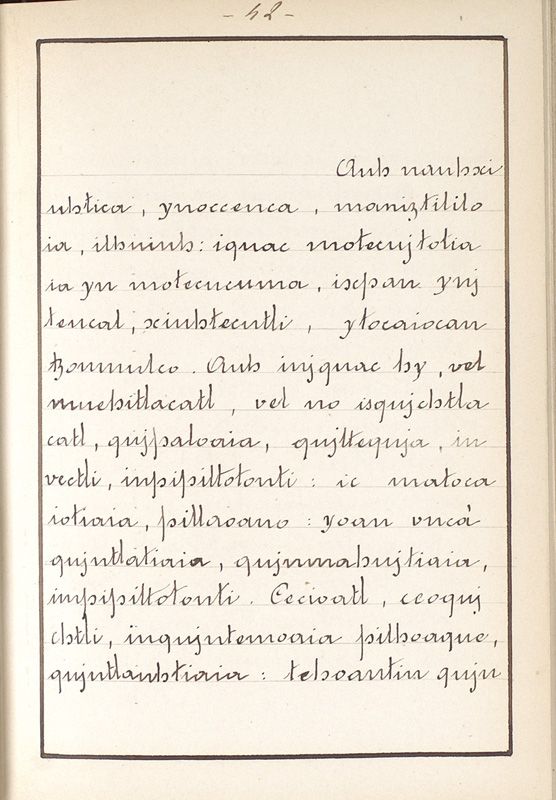 - 42 -
Auh nauhxi
uhtica, ynoccenca, maniztililo
ia, ilhuiuh: iquac motecujtotia
ia yn motecucuma, ixpan ynj
tencal, xiuhtecutli, ytocaiocan
tzonmulco. Auh injquac hy, vel
muchitlacatl, vel no isqujchtla
catl, qujpaloaia, qujltequja, in
vectli, inpipiltotonti: ic matoca
iotiaia, pillaoano: yoan vncà
qujntlatiaia, qujnnahujtiaia,
impipiltotonti. Cecioatl, ceoquj
chtli, inqujntemoaia pilhoaque,
qujntlauhtiaia: tehoantin qujn